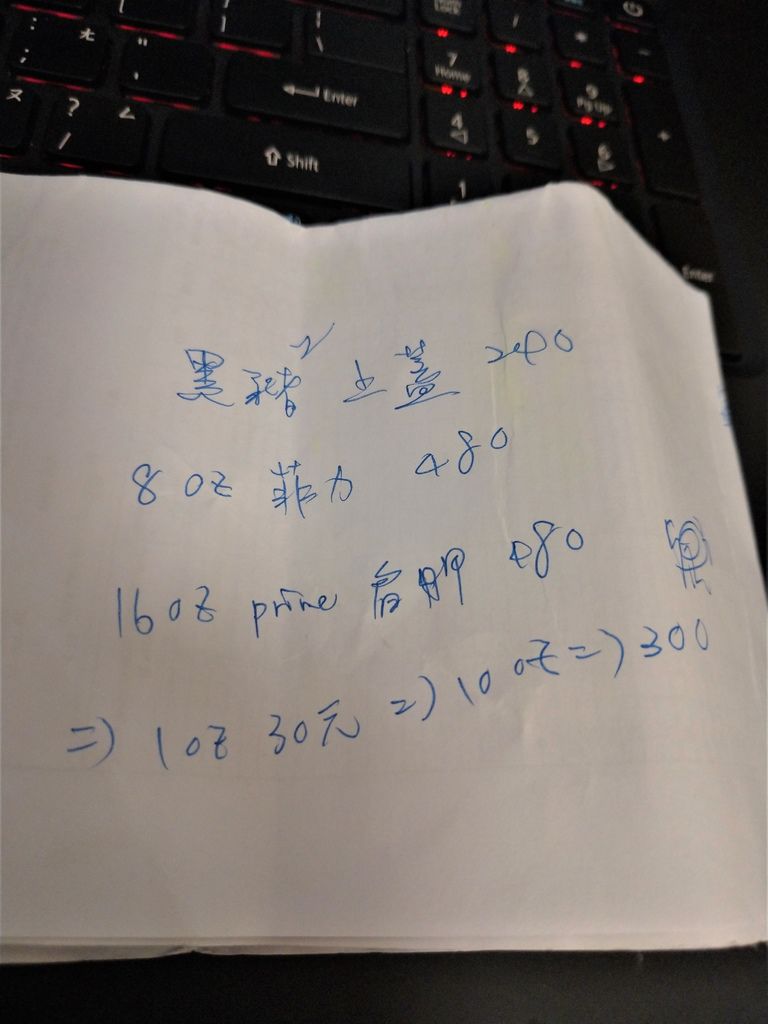 : ;
ㄤ
" '
Enter
7 Home
8
9 PgUp
ㄡ
? /
ㄥ
Shift
4
5
6
+
1
Enter
黑豬 上蓋 240
8 oz 菲力 480
16 oz prime 肩胛 480
=) 1 oz 30元 =) 10 oz =) 300